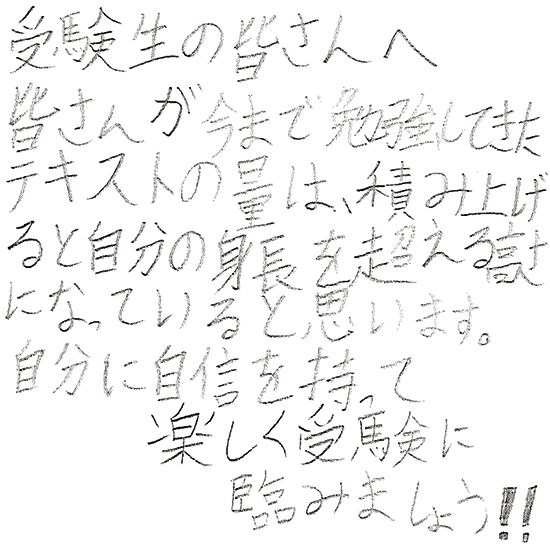 受験生の皆さんへ
皆さんが今まで勉強してきた
テキストの量は、積み上げ
ると自分の身長を超える高さ
になっていると思います。
自分に自信を持って
楽しく受験に
臨みましょう!!